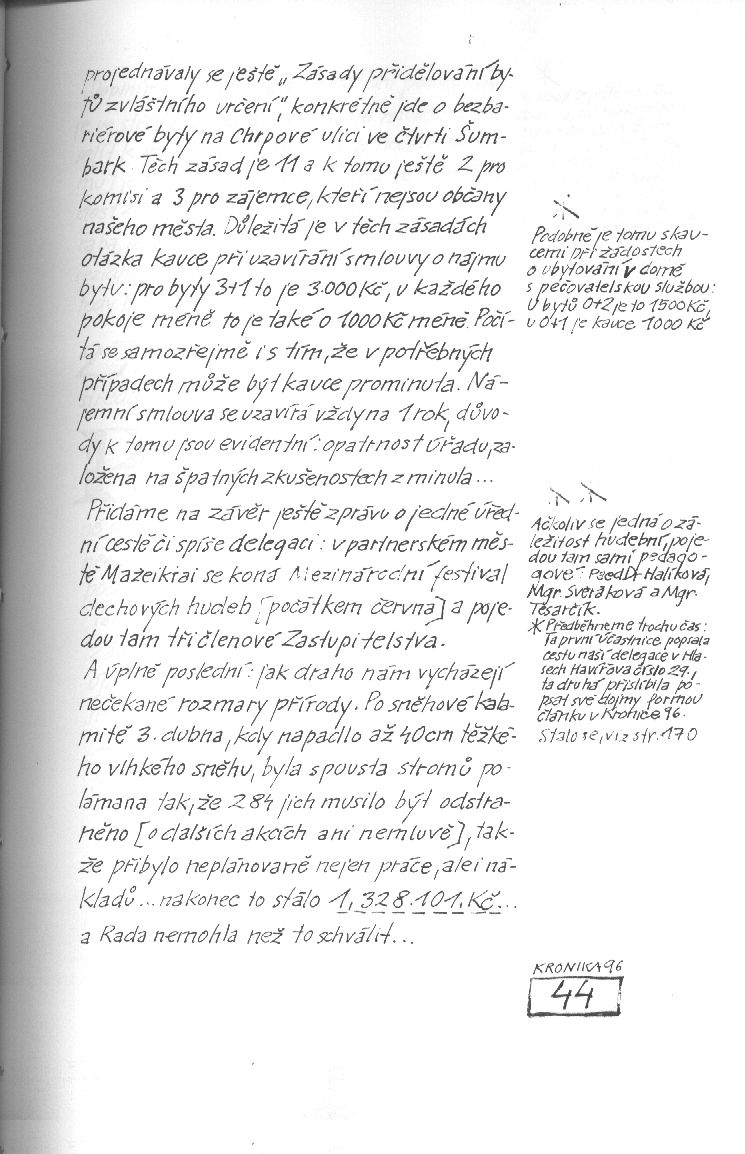 projednávaly se ještě „Zásady přidělování by-
tů zvláštního určení", konkrétně jde o bezba-
riérové byty na Chrpové ulici ve čtvrti Šum-
bark. Těch zásad je 11 a k tomu ještě 2 pro
komisi a 3 pro zájemce, kteří nejsou občany
našeho města. Důležitá je v těch zásadách
otázka kauce při uzavírání smlouvy o nájmu
bytu: pro byty 3+1 to je 3.000 Kč, u každého
pokoje méně to je také o 1000 Kč méně. Počí-
tá se samozřejmě i s tím, že v potřebných
případech může být kauce prominuta. Ná-
jemní smlouva se uzavírá vždy na 1 rok, důvo-
dy k tomu jsou evidentní: opatrnost úřadu, za-
ložena na špatných zkušenostech z minula...
Přidáme na závěr ještě zprávu o jedné úřed-
ní cestě či spíše delegaci: v partnerském měs-
tě Mažeikiai se koná Mezinárodní festival
dechových hudeb [počátkem června] a poje-
dou tam tři členové Zastupitelstva.
A úplně poslední: jak draho nám vycházejí
nečekané rozmary přírody. Po sněhové kala-
mitě 3. dubna, kdy napadlo až 40cm těžké-
ho vlhkého sněhu, byla spousta stromů po-
lámana tak, že 284 jich musilo být odstra-
něno [o dalších akcích ani nemluvě], tak-
že přibylo neplánovaně nejen práce, ale i ná-
kladů... nakonec to stálo 1,328.101.Kč...
a Rada nemohla než to schválit...
*
Podobně je tomu s kau-
cemi při žádostech
o ubytování v domě
s pečovatelskou službou:
U bytů 0+2 je to 1500 Kč,
u 0+1 je kauce 1000 Kč
* *
Ačkoliv se jedná o zá-
ležitost hudební, poje-
dou tam samí pedago-
gové: PaedDr Halíková,
Mgr. Svěráková a Mgr.
Tesarčík.
* Předběhneme trochu čas:
Ta první účastnice popsala
cestu naší delegace v Hla-
sech Havířova číslo 29.,
ta druhá přislíbila po-
psat své dojmy formou
článku v Kronice 96.
Stalo se, viz str. 170
KRONIKA 96
44